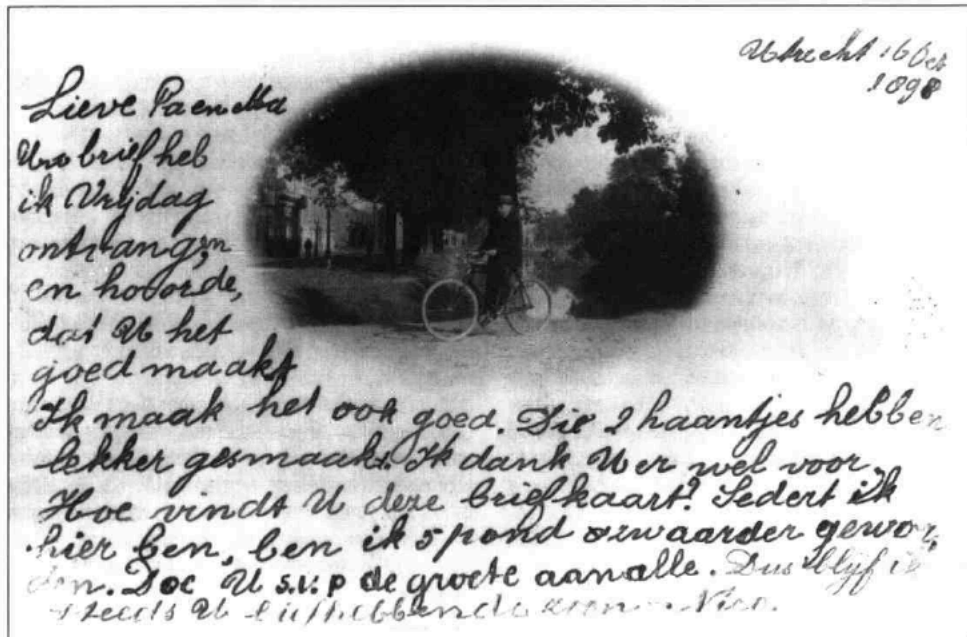 Utrecht 16 Oct
1898
Lieve Pa en Ma
Uw brief heb
ik Vrijdag
ontvangen
en hoorde,
dat U het
goed maakt
Ik maak het ook goed. Die 2 haantjes hebben
lekker gesmaakt. Ik dank U er wel voor.
Hoe vindt U deze briefkaart? Sedert ik
hier ben, ben ik 5 pond zwaarder gewor-
den. Doe U s.v.p de groete aan alle. Dus blijf ik
steeds U liefhebbende zoon Nico.